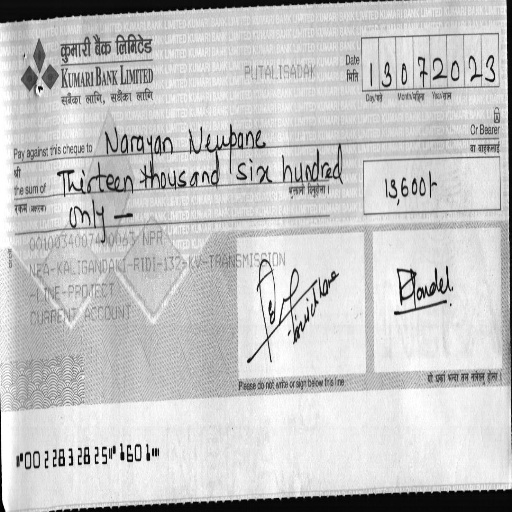 कुमारी बैंक लिमिटेड
KUMARI BANK LIMITED
सबैका लागि, सधैंका लागि
PUTALISADAK
Date
मिति
13072023
Day/गते Month/महिना Year/साल
Pay against this cheque to Narayan Neupane Or Bearer
श्री वा वाहकलाई
the sum of Thirteen thousand six hundred
रकम (अक्षरमा)
only —
13,600/-
0010034007400063 NPR
NEA-KALIGANDAKI-RIDI-132-KV-TRANSMISSION
-LINE-PROJECT
CURRENT ACCOUNT
Please do not write or sign below this line
यो धर्का भन्दा तल नलेख्नु होला ।
⑈00228328 25⑈ 1601⑈